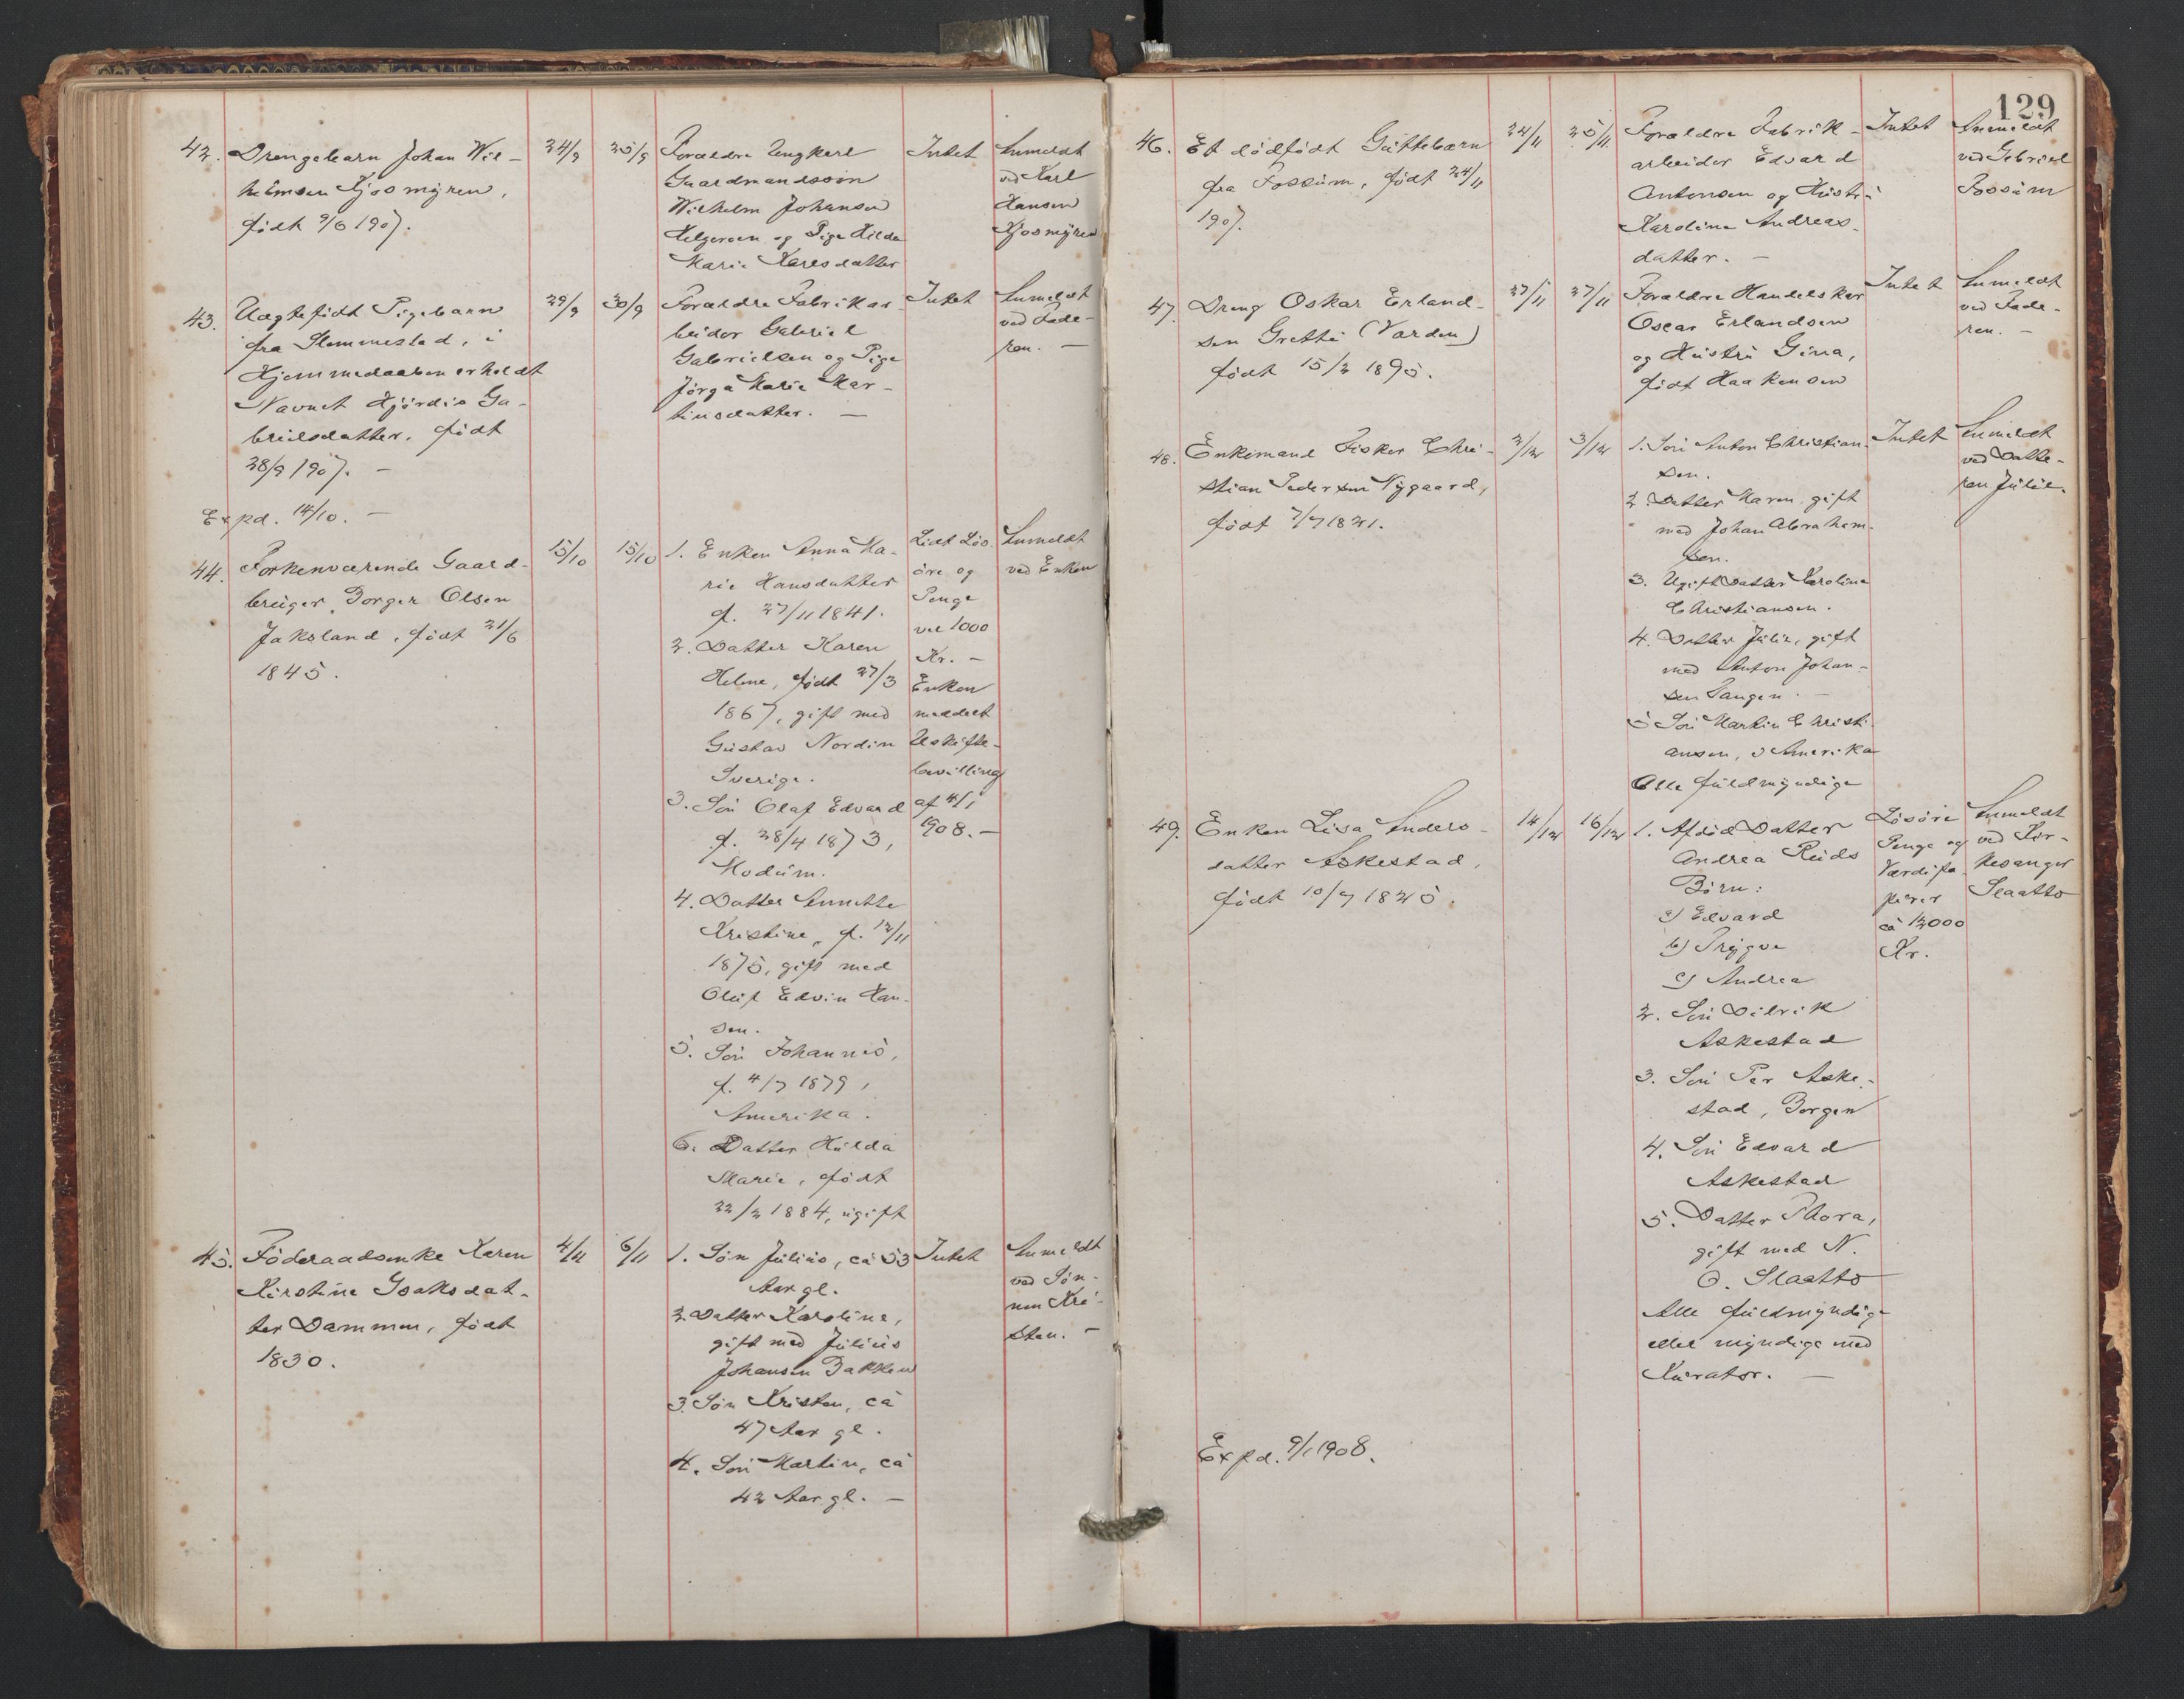 42. Drengebarn Johan Wil-
helmsen Kjosmyren,
født 9/6 1907.
24/9
25/9
Forældre Ungkarl
Gaardmandssøn
Wilhelm Johansen
Helgeroen og Pige Hilda
Marie Karlsdatter
Intet
Anmeldt
ved Karl
Hansen
Kjosmyren
43. Uægtefødt Pigebarn
fra Slemmestad, i
Hjemmedaaben erholdt
Navnet Hjørdis Ga-
brielsdatter, født
28/9 1907. -
Expd. 14/10. -
29/9
30/9
Forældre Fabrikar-
beider Gabriel
Gabrielsen og Pige
Jørga Marie Mar-
tinsdatter. -
Intet
Anmeldt
ved Fade-
ren. -
44. Forhenværende Gaard-
bruger Borger Olsen
Jaksland, født 21/6
1845.
15/10
15/10
1. Enken Anna Ma-
rie Hansdatter
f. 27/11 1841.
2. Datter Karen
Helene, født 27/3
1867, gift med
Gustav Nordin
Sverige.
3. Søn Olaf Edvard
f. 28/4 1873,
Modum.
4. Datter Annette
Kristine, f. 12/11
1875, gift med
Oluf Edvin Han-
sen.
5. Søn Johannes,
f. 4/7 1879,
Amerika.
6. Datter Hulda
Marie, født
22/2 1884, ugift
Lidt Løs-
øre og
Penge
vel 1000
Kr. -
Enken
meddelt
Uskifte-
bevilling
af 4/1
1908. -
Anmeldt
ved Enken
45. Føderaadsenke Karen
Kirstine Isaksdat-
ter Dammen, født
1830.
4/11
6/11
1. Søn Julius, ca 53
Aar gl.
2. Datter Karoline,
gift med Julius
Johansen Bakken
3. Søn Kristen, ca
47 Aar gl.
4. Søn Martin, ca
42 Aar gl. -
Intet
Anmeldt
ved Søn-
nen Kri-
sten. -
129
46. Et dødfødt Guttebarn
fra Fossum, født 24/11
1907.
24/11
25/11
Forældre Fabrik-
arbeider Edvard
Antonsen og Hustru
Karoline Andreas-
datter. -
Intet
Anmeldt
ved Gebriel
Fossum
47. Dreng Oskar Erland-
sen Grette (Varden)
født 15/2 1895.
27/11
27/11
Forældre Handelskar
Oscar Erlandsen
og Hustru Gina,
født Haakensen
Intet
Anmeldt
ved Fade-
ren. -
48. Enkemand Fisker Chri-
stian Pedersen Nygaard,
født 7/7 1821.
2/12
3/12
1. Søn Anton Christian-
sen.
2. Datter Maren gift
med Johan Abraham-
sen.
3. Ugift Datter Karoline
Christiansen.
4. Datter Julie, gift
med Anton Johan-
sen Tangen. -
5 Søn Martin Christi-
ansen, i Amerika
Alle fuldmyndige
Intet
Anmeldt
ved Datte-
ren Julie.
49. Enken Lisa Anders-
datter Askestad,
født 10/7 1825.
14/12
16/12
1. Afdød Datter
Andrea Ruds
Børn:
a) Edvard
b) Trygve
c) Andrea
2. Søn Didrik
Askestad
3. Søn Per Aske-
stad, Borgen
4. Søn Edvard
Askestad
5. Datter Thora,
gift med N.
O. Slaatto
Alle fuldmyndige
eller myndige med
Kurator. -
Løsøre
Penge og
Værdipa-
pirer
ca 12000
Kr.
Anmeldt
ved Kir-
kesanger
Slaatto
Expd. 9/1 1908.